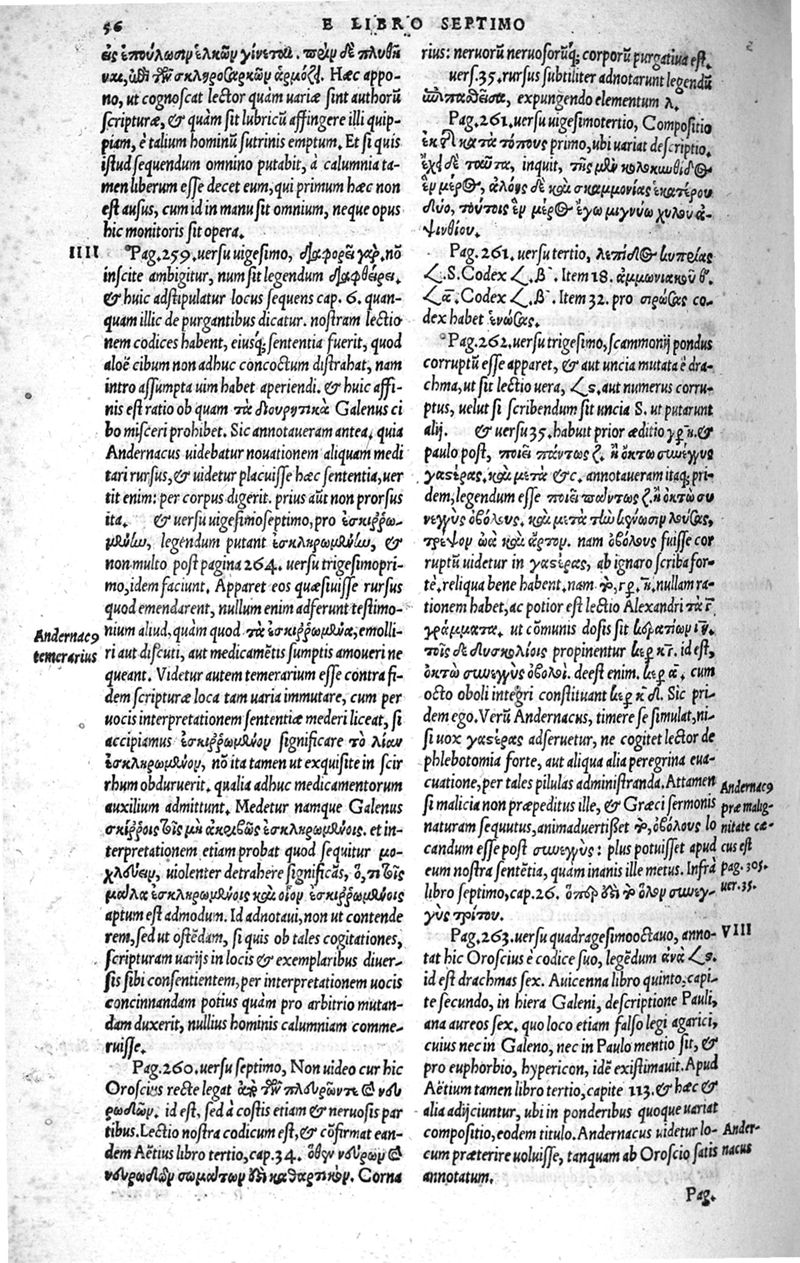 56
E LIBRO SEPTIMO
εἰς ἐπούλωσιν ἑλκῶν γίνεται. πρὸς δὲ
τῶν σκληροσαρκῶν ἁρμόζει. Hæc appo-
no, ut cognoscat lector quàm variæ sint authorũ
scripturæ, & quàm sit lubricũ affingere illi quip-
piam, è talium hominũ sutrinis emptum. Et si quis
istud sequendum omnino putabit, à calumnia ta-
men liberum esse decet eum, qui primum hæc non
est ausus, cum id in manu sit omnium, neque opus
hic monitoris sit opera.
IIII
Pag. 259. uersu uigesimo, διαφορεῖ γὰρ. nõ
inscite ambigitur, num sit legendum διαφθείρει.
& huic adstipulatur locus sequens cap. 6. quan-
quam illic de purgantibus dicatur. nostram lectio
nem codices habent, eiusq; sententia fuerit, quod
aloë cibum non adhuc concoctum distrahat, nam
intro assumpta uim habet aperiendi. & huic affi-
nis est ratio ob quam τὰ διουρητικὰ Galenus ci
bo misceri prohibet. Sic annotaueram antea. quia
Andernacus uidebatur nouationem aliquam medi
tari rursus, & uidetur placuisse hæc sententia, uer
tit enim: per corpus digerit. prius aũt non prorsus
ita. & uersu uigesimoseptimo, pro ἐσκιῤῥω-
μένων, legendum putant ἐσκληρωμένων, &
non multo post pagina 264. uersu trigesimopri-
mo, idem faciunt. Apparet eos quæsiuisse rursus
quod emendarent, nullum enim adferunt testimo-
Andernacꝰ
temerarius
nium aliud, quàm quod τὰ ἐσκιῤῥωμένα, emolli-
ri aut discuti, aut medicamẽtis sumptis amoueri ne
queant. Videtur autem temerarium esse contra fi-
dem scripturæ loca tam uaria immutare, cum per
uocis interpretationem sententiæ mederi liceat, si
accipiamus ἐσκιῤῥωμένον significare τὸ λίαν
ἐσκληρωμένον, nõ ita tamen ut exquisite in scir
rhum obduruerit. qualia adhuc medicamentorum
auxilium admittunt. Medetur namque Galenus
σκίῤῥοις τοῖς μὴ ἀκριβῶς ἐσκληρωμένοις. et in-
terpretationem etiam probat quod sequitur μο-
χλεύειν, uiolenter detrahere significãs, ὅ, τι τοῖς
μάλα ἐσκληρωμένοις καὶ οἷον ἐσκιῤῥωμένοις
aptum est admodum. Id adnotaui, non ut contende
rem, sed ut ostẽdam, si quis ob tales cogitationes,
scripturam uarijs in locis & exemplaribus diuer-
sis sibi consentientem, per interpretationem uocis
concinnandam potius quàm pro arbitrio mutan-
dam duxerit, nullius hominis calumniam comme-
ruisse.
Pag. 260. uersu septimo, Non uideo cur hic
Oroscius recte legat νευ
ρωδῶν. id est, sed à costis etiam & neruosis par
tibus. Lectio nostra codicum est, & cõfirmat ean-
dem Aëtius libro tertio, cap. 34. ὅθεν νεύρων καὶ
νευρωδῶν σωμάτων ἐστὶ καθαρτικόν. Corna
rius: neruorũ neruosorũq; corporũ purgatiua est.
uers. 35. rursus subtiliter adnotarunt legendũ
expungendo elementum λ.
Pag. 261. uersu uigesimotertio, Compositio
κατὰ τόπους primo, ubi uariat descriptio.
ἔχει δὲ ταῦτα, inquit, τῆς μὲν κολοκυνθίδος
ἓν μέρος, ἀλόης δὲ καὶ σκαμμονίας ἑκατέρου
δύο, τούτοις ἓν μέρος ἐγὼ μιγνύω χυλοῦ ἀ-
ψινθίου.
Pag. 261. uersu tertio, λεπίδος κυπρίας
S. Codex β. Item 18. ἀμμωνιακοῦ
α. Codex β. Item 32. pro co-
dex habet ἑνώσας.
Pag. 262. uersu trigesimo, scammonij pondus
corruptũ esse apparet, & aut uncia mutata è dra-
chma, ut sit lectio uera, s. aut numerus corru-
ptus, uelut si scribendum sit uncia S. ut putarunt
alij. & uersu 35. habuit prior æditio γρ. η. &
paulo post, ποιεῖ πάντως ζ. ἢ ὀκτὼ συνεγγυς
γαστέρας. καὶ μετὰ &c. annotaueram itaq; pri-
dem, legendum esse ποιεῖ πάντως ζ. ἢ ὀκτὼ συ
νεγγὺς ὀβολοὺς. καὶ μετὰ τὴν κένωσιν λούσας,
τρέψον ὠὰ καὶ ἄρτον. nam ὀβολοὺς fuisse cor
ruptũ uidetur in γαστέρας, ab ignaro scriba for-
te, reliqua bene habent. nam nullam ra-
tionem habet, ac potior est lectio Alexandri
γράμματα. ut cõmunis dosis sit κερατίων
τοῖς δὲ δυσκολίοις propinentur κερ. id est,
ὀκτὼ συνεγγὺς ὀβολοὶ. deest enim. κερ. α. cum
octo oboli integri constituant κερ. Sic pri-
dem ego. Verũ Andernacus, timere se simulat, ni-
si uox γαστέρας adseruetur, ne cogitet lector de
phlebotomia forte, aut aliqua alia peregrina eua-
cuatione, per tales pilulas administranda. Attamen
Andernacꝰ
præ malig-
nitate cæ-
cus est
pag. 305.
uer. 35.
si malicia non præpeditus ille, & Græci sermonis
naturam sequutus, animaduertißet τὸ, ὀβολοὺς lo
candum esse post συνεγγὺς: plus potuisset apud
eum nostra sentẽtia, quàm inanis ille metus. Infrà
libro septimo, cap. 26. ὅπερ ἐστὶ τὸ ὅλον συνεγ-
γὺς τρίτου.
VIII
Pag. 263. uersu quadragesimooctauo, anno-
tat hic Oroscius è codice suo, legẽdum ἀνὰ s.
id est drachmas sex. Auicenna libro quinto, capi-
te secundo, in hiera Galeni, descriptione Pauli,
ana aureos sex. quo loco etiam falso legi agarici,
cuius nec in Galeno, nec in Paulo mentio sit, &
pro euphorbio, hypericon, idẽ existimauit. Apud
Aëtium tamen libro tertio, capite 113. & hæc &
alia adijciuntur, ubi in ponderibus quoque uariat
Ander-
nacus
compositio, eodem titulo. Andernacus uidetur lo-
cum præterire uoluisse, tanquam ab Oroscio satis
annotatum.
Pag.